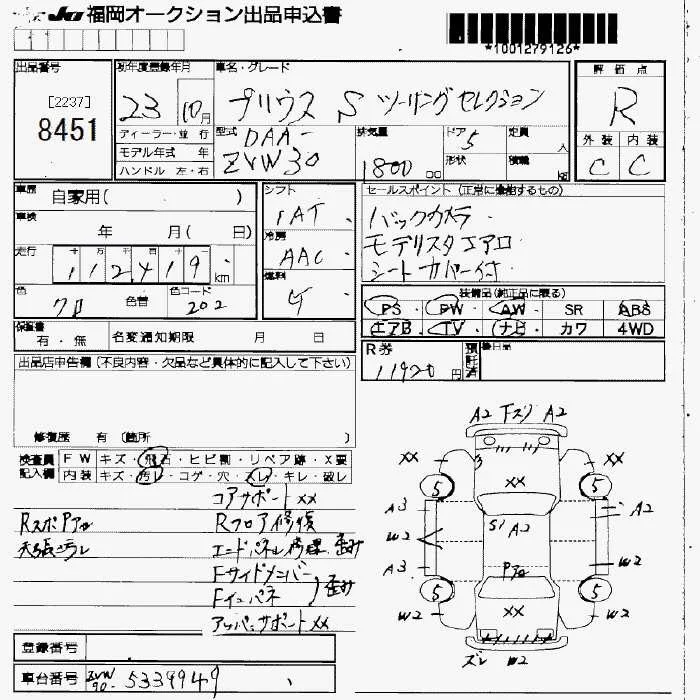 JU福岡オークション出品申込書
*1001279126*
出品番号
[2237]
8451
初年度登録年月
23 10月
ディーラー・並 行
モデル年式 年
ハンドル 左・右
車名・グレード
プリウス S ツーリングセレクション
型式
DAA-
ZVW30
排気量
1800 cc
ドア
5
形状
定員
人
積載
kg
評 価 点
R
外 装 内 装
C C
車歴
自家用( )
車検
年 月( 日)
走行
十 万 千 百 十 一
112419 km
色
クロ
色替
色コード
202
シフト
FAT
冷房
AAC
燃料
G
セールスポイント (正常に機能するもの)
バックカメラ
モデリスタエアロ
シートカバー付
装備品(純正品に限る)
PS PW AW SR ABS
エアB TV ナビ カワ 4WD
保証書
有・無
名変通知期限 月 日
R券
11920 円
預託済
後日品
出品店申告欄(不良内容・欠品など具体的に記入して下さい)
修復歴 有 (箇所 )
検査員
記入欄
FW キズ・飛石・ヒビ割・リペア跡・X要
内装 キズ・汚レ・コゲ・穴・スレ・キレ・破レ
コアサポートXX
RスポアタアナRフロア修復
天張汚レ
エンドパネル修理 歪み
Fサイドメンバー
Fインパネ
歪み
アッパーサポートXX
A2 下スリ A2
XX XX
5 5
XX
A3 A2
S1 A2
W2
A3 W2
Pアナ
5 5
W2 XX W2
ズレ W2
登録番号
車台番号
ZVW
30- 5339949